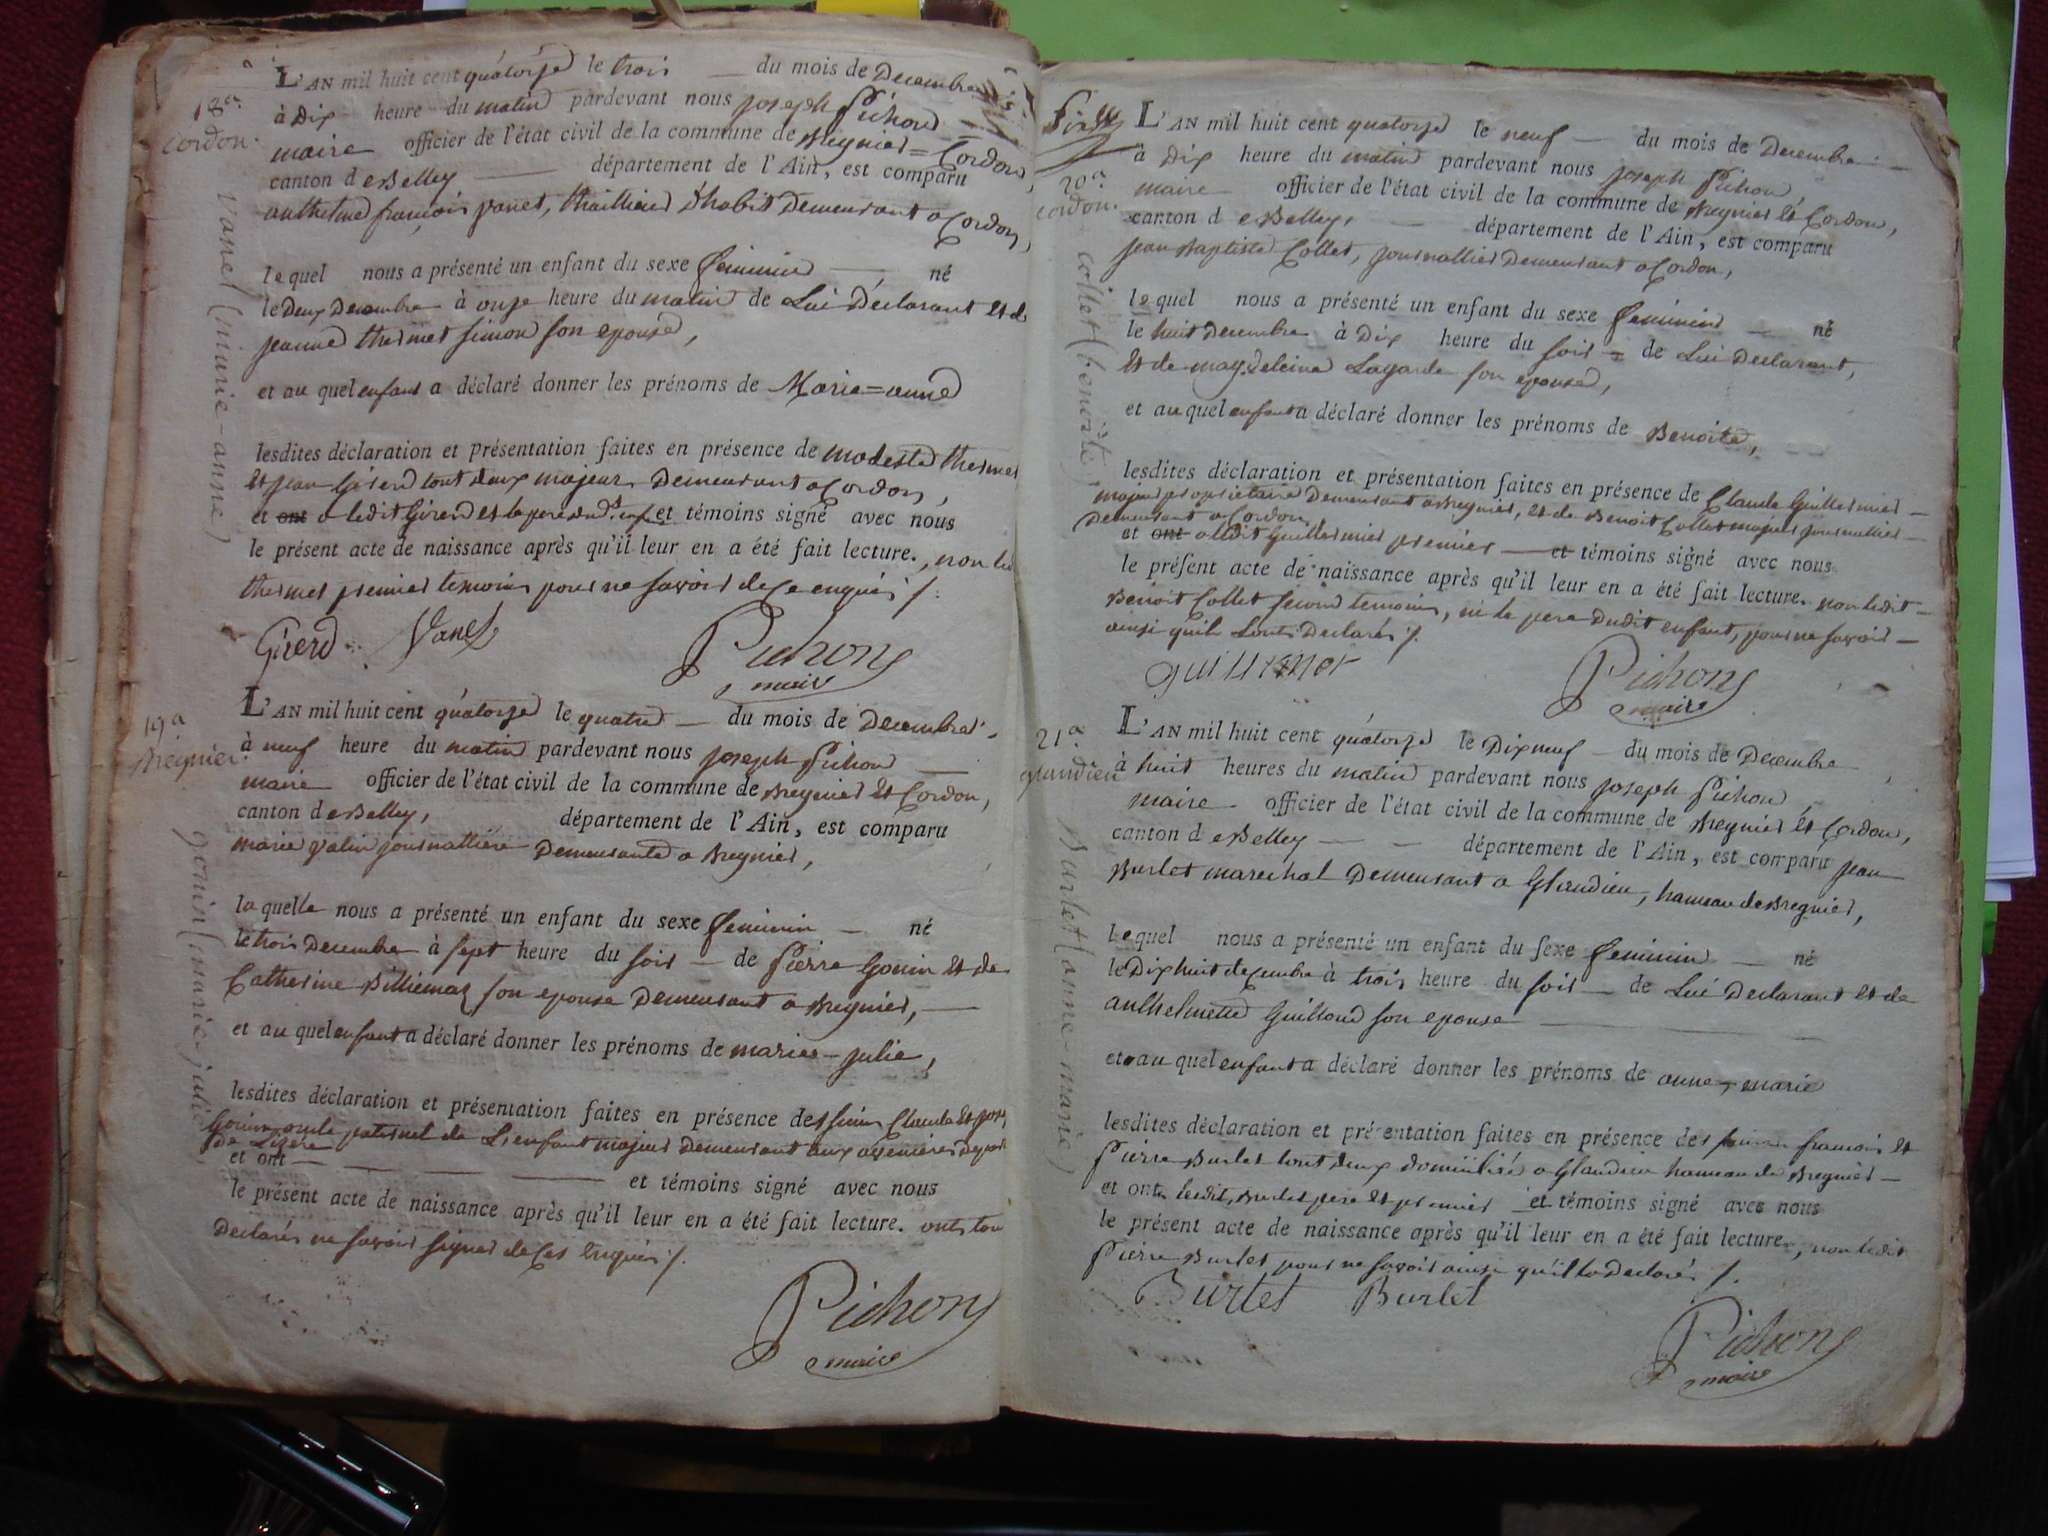 18a
Cordon.
Vanel (marie-anne)
L'AN mil huit cent quatorze le trois du mois de Decembre
à Dix heure du matin pardevant nous joseph Pichon
maire officier de l'état civil de la commune de Bregnier = Cordon,
canton de Belley département de l'Ain, est comparu
anthelme françois vanel, thaillieur d'habit Demeurant a Cordon,
lequel nous a présenté un enfant du sexe feminin né
le Deux Decembre à onze heure du matin de Lui Déclarant et de
jeanne thermet simon son epouse,
et au quel enfant a déclaré donner les prénoms de Marie=anne
lesdites déclaration et présentation faites en présence de modeste thermet
et jean Girerd tout deux majeurs Demeurant a Cordon,
et ont a ledit Girerd et le pere dud. enf. et témoins signé avec nous
le présent acte de naissance après qu'il leur en a été fait lecture., non led
thermet premier temoin pour ne savoir de ce enquis /.
Girerd Vanel
Pichon
maire
19a
Bregnier.
gouin (marie-julie)
L'AN mil huit cent quatorze le quatre du mois de Decembre
à neuf heure du matin pardevant nous joseph Pichon
maire officier de l'état civil de la commune de Bregnier et Cordon,
canton de Belley, département de l'Ain, est comparu
marie valin journallière Demeurante a Bregnier,
laquelle nous a présenté un enfant du sexe feminin né
le trois Decembre à sept heure du soir de Pierre Gouin et de
Catherine Billiemaz son epouse Demeurant a Bregnier,
et au quel enfant a déclaré donner les prénoms de marie-julie,
lesdites déclaration et présentation faites en présence des sieurs Claude et
Gouin oncle paternel de L'enfant majeur Demeurant aux avenieres
de Lizere
et ont et témoins signé avec nous
le présent acte de naissance après qu'il leur en a été fait lecture. onts tou
Declarés ne savoir signer de Ces Enquis /.
Pichon
maire
20a
Cordon.
collet (benoite)
L'AN mil huit cent quatorze le neuf du mois de Decembre
à Dix heure du matin pardevant nous joseph Pichon
maire officier de l'état civil de la commune de Bregnier et Cordon,
canton de Belley, département de l'Ain, est comparu
jean Baptiste Collet, journallier Demeurant a Cordon,
lequel nous a présenté un enfant du sexe feminin né
le huit Decembre à Dix heure du soir de Lui Declarant,
et de magdeleine Lagarde son epouse,
et au quel enfant a déclaré donner les prénoms de Benoite,
lesdites déclaration et présentation faites en présence de Claude Guillermier
majeur proprietaire Demeurant a Bregnier, et de Benoit Collet majeur journallier
Demeurant a Cordon
et ont a ledit Guillermier premier et témoins signé avec nous
le présent acte de naissance après qu'il leur en a été fait lecture. non ledit
Benoit Collet second temoin, ni le pere dudit enfant, pour ne savoir
ainsi quils Lonts Declarés /.
guillermer
Pichon
maire
21a
glandieu
Burlet (anne-marie)
L'AN mil huit cent quatorze le Dix neuf du mois de Decembre
à huit heures du matin pardevant nous joseph Pichon
maire officier de l'état civil de la commune de Bregnier et Cordon,
canton de Belley département de l'Ain, est comparu jean
Burlet marechal Demeurant a Glandieu, hameau de Bregnier,
lequel nous a présenté un enfant du sexe feminin né
le Dix huit decembre à trois heure du soir de Lui Declarant et de
anthelmette Guilloud son epouse
et au quel enfant a déclaré donner les prénoms de anne-marie
lesdites déclaration et présentation faites en présence des sieurs francois et
Pierre Burlet tout deux domiciliés a Glandieu hameau de Bregnier
et ont ledit Burlet pere et premier et témoins signé avec nous
le présent acte de naissance après qu'il leur en a été fait lecture, non ledit
Pierre Burlet pour ne savoir ainsi qu'il la Declaré /.
Burlet Burlet
Pichon
maire